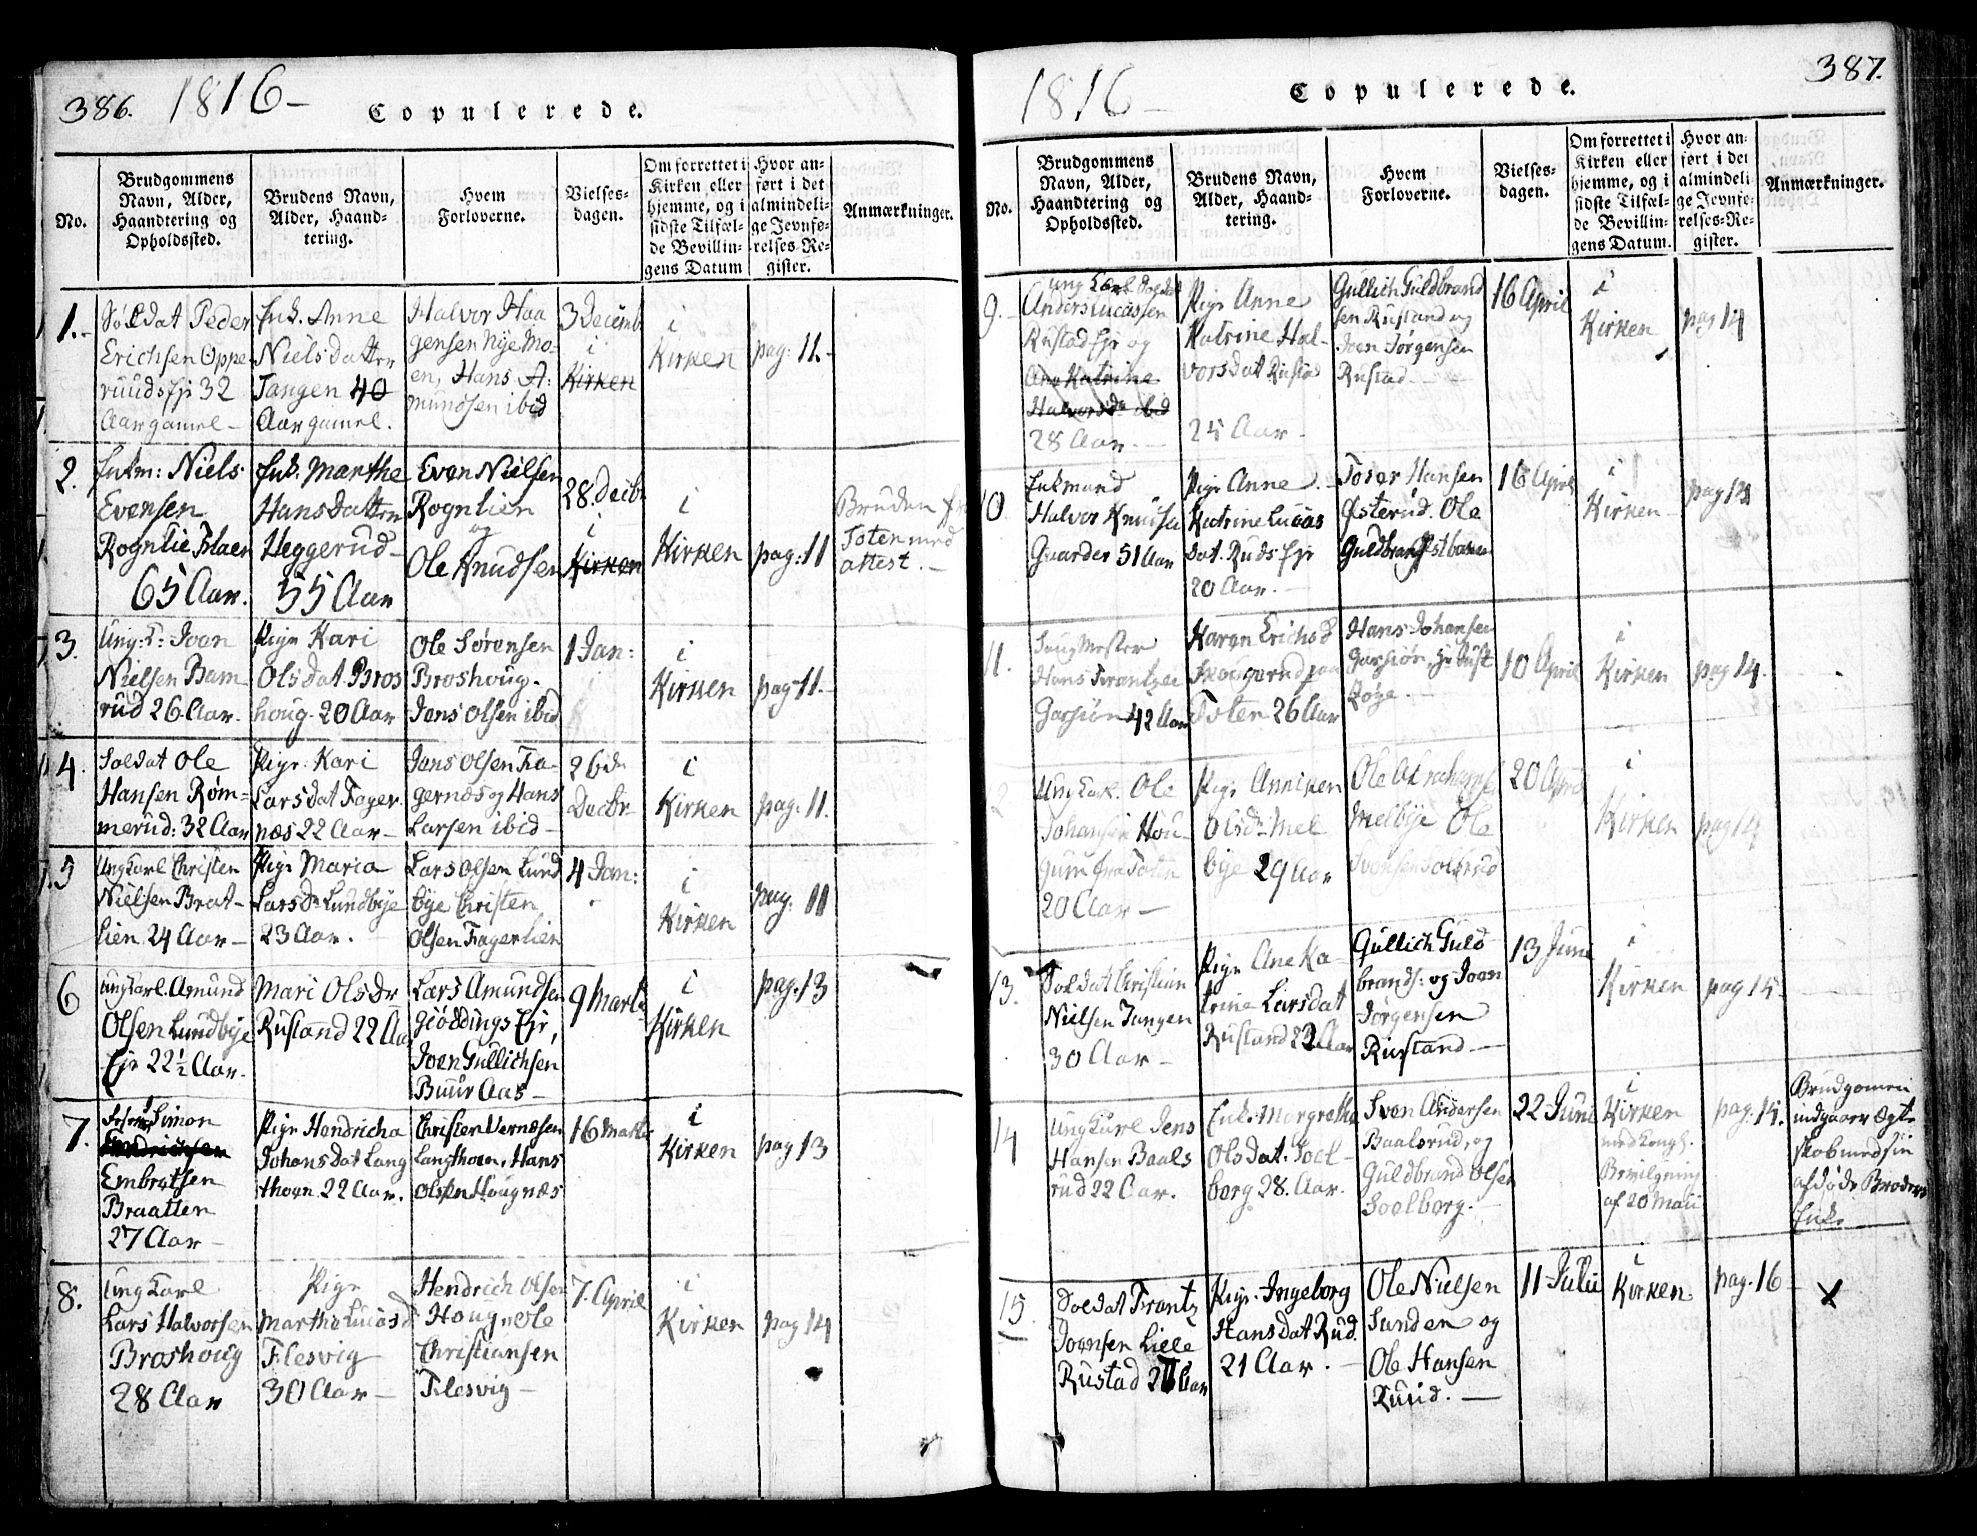 386. 1816 –
Copulerede.
No.
Brudgommens
Navn, Alder,
Haandtering og
Opholdssted.
Brudens Navn,
Alder, Haand-
tering.
Hvem
Forloverne.
Vielses-
dagen.
Om forrettet i
Kirken eller
hjemme, og i
sidste Tilfæl-
de Bevillin-
gens Datum
Hvor an-
ført i det
almindeli-
ge Jevnfø-
relses-Re-
gister.
Anmærkninger.
1.-
Soldat Peder
Erichsen Oppe
ruuds Ejr 32
Aar gamel –
Enk. Anne
Nielsdatter
Tangen 40
Aar gamel.
Halvor Haa
gensen Nye Mo-
en, Hans A-
mundsen ibid
3 Decemb
i
Kirken
i
Kirken
pag: 11.-
2.
Enkm: Niels
Evensen
Rognlie
65 Aar.
Enk. Marthe
Hansdatter
Heggerud-
55 Aar
Even Nielsen
Rognlien
og
Ole Knudsen
28 Decbr
i
Kirken
i
Kirken
pag: 11
Bruden fra
Toten med
attest. –
3.
Ung.K: Joen
Nielsen Bam
rud 26 Aar.
Pige Kari
Olsdat. Bros
houg. 20 Aar
Ole Sørensen
Broshoug.
Jens Olsen ibid
1 Jan:
i
Kirken
pag 11.-
4.
Soldat Ole
Hansen Røm-
merud: 32 Aar
Pige Kari
Larsdat Fager
næs 22 Aar –
Jens Olsen Fa-
gernæs og Hans
Larsen ibid –
26 de
Decbr
i
Kirken
pag: 11.
5
Ungkarl Christen
Nielsen Brat-
lien 24 Aar –
Pige Maria
Larsdr Lundbye
23 Aar.
Lars Olsen Lund
bye Christen
Olsen Fagerlien
4 Jan:
i
Kirken
pag: 11
6
Ungkarl Amund
Olsen Lundbye
Ejr 22½ Aar.
Mari Olsdr
Rustand 22 Aar
Lars Amundsen
Giøddings Ejr,
Joen Gullichsen
Buur Aas –
9 Marts
i
Kirken
pag: 13
7.
Simon
Embretsen
Braatten
27 Aar –
Pige Hendricha
Johansdat Lang
thoen 22 Aar.
Christen Vernæsen
Langthoen, Hans
Olsen Hougnæs
16 Marts
i
Kirken
pag 13
8.
Ung Karl
Lars Halvorsen
Broshoug
28 Aar
Pige
Marthe Lucasd
Flesvig
30 Aar –
Hendrich Olsen
Houg, Ole
Christiansen
Flesvig –
7. April
i
Kirken
pag 14
387.
1816 –
Copulerede.
No.
Brudgommens
Navn, Alder,
Haandtering og
Opholdssted.
Brudens Navn,
Alder, Haand-
tering.
Hvem
Forloverne.
Vielses-
dagen.
Om forrettet i
Kirken eller
hjemme, og i
sidste Tilfæl-
de Bevillin-
gens Datum.
Hvor an-
ført i det
almindeli-
ge Jevnfø-
relses-Re-
gister.
Anmærkninger.
9.
Ung Karl
Anders Lucassen
Rustad Ejr og
Ane Katrine
Halvorsdr ibid
28 Aar. –
Pige Anne
Katrine Hal-
vorsdat Rustad
25 Aar –
Gullich Guldbrand
sen Rustand og
Joen Jørgensen
Rustad –
16 April
i
Kirken
pag 14
10
Enkemand
Halvor Knudsen
Gaarder 51 Aar
Pige Anne
Katrine Lucas
dat. Ruds Ejr
20 Aar. –
Hansen
Østerud. Ole
Guldbrand
16 April
i
Kirken
pag 14
11.
Hans Frantzen
Garsiøn 42 Aar
Karen Erichsd
Skougerud paa
Toten 26 Aar
Hans Johansen
Garsiøn,
10 April
i
Kirken
pag 14.
2
Ung Karl. Ole
Johansen Hou-
gum fra Toten
20 Aar –
Pige Anniken
Olsdr Mel
bye 29 Aar
Ole Abrahamsen
Melbye Ole
Svensen
20 April
i
Kirken
pag 14
13.
Soldat Christian
Nielsen Tangen
30 Aar –
Pige Ane Ka-
trine Larsdat
Rustand 22 Aar
Gullich Guld
brands: og Joen
Jørgensen
Rustand –
13 Juni
i
Kirken
pag 15.
14
Ung Karl Jens
Hansen Baals
rud 22 Aar.
Enke Margrethe
Olsdat. Soel-
borg 28. Aar.
Sven Andersen
Baalsrud, og
Guldbrand Olsen
Soelborg. –
22 Juni
i
Kirken
med kongl.
Bevilgning
af 20 Maii
pag. 15.
Brudgomen
indgaaer Ægte
skab med sin
afdøde Broders
Enke
15
Soldat Frantz
Joensen Lille
Rustad Aar
Pige. Ingeborg
Hansdat Rud.
21 Aar. –
Ole Nielsen
Sunden og
Ole Hansen
Ruud. –
11 Julii
i
Kirken.
pag. 16
x